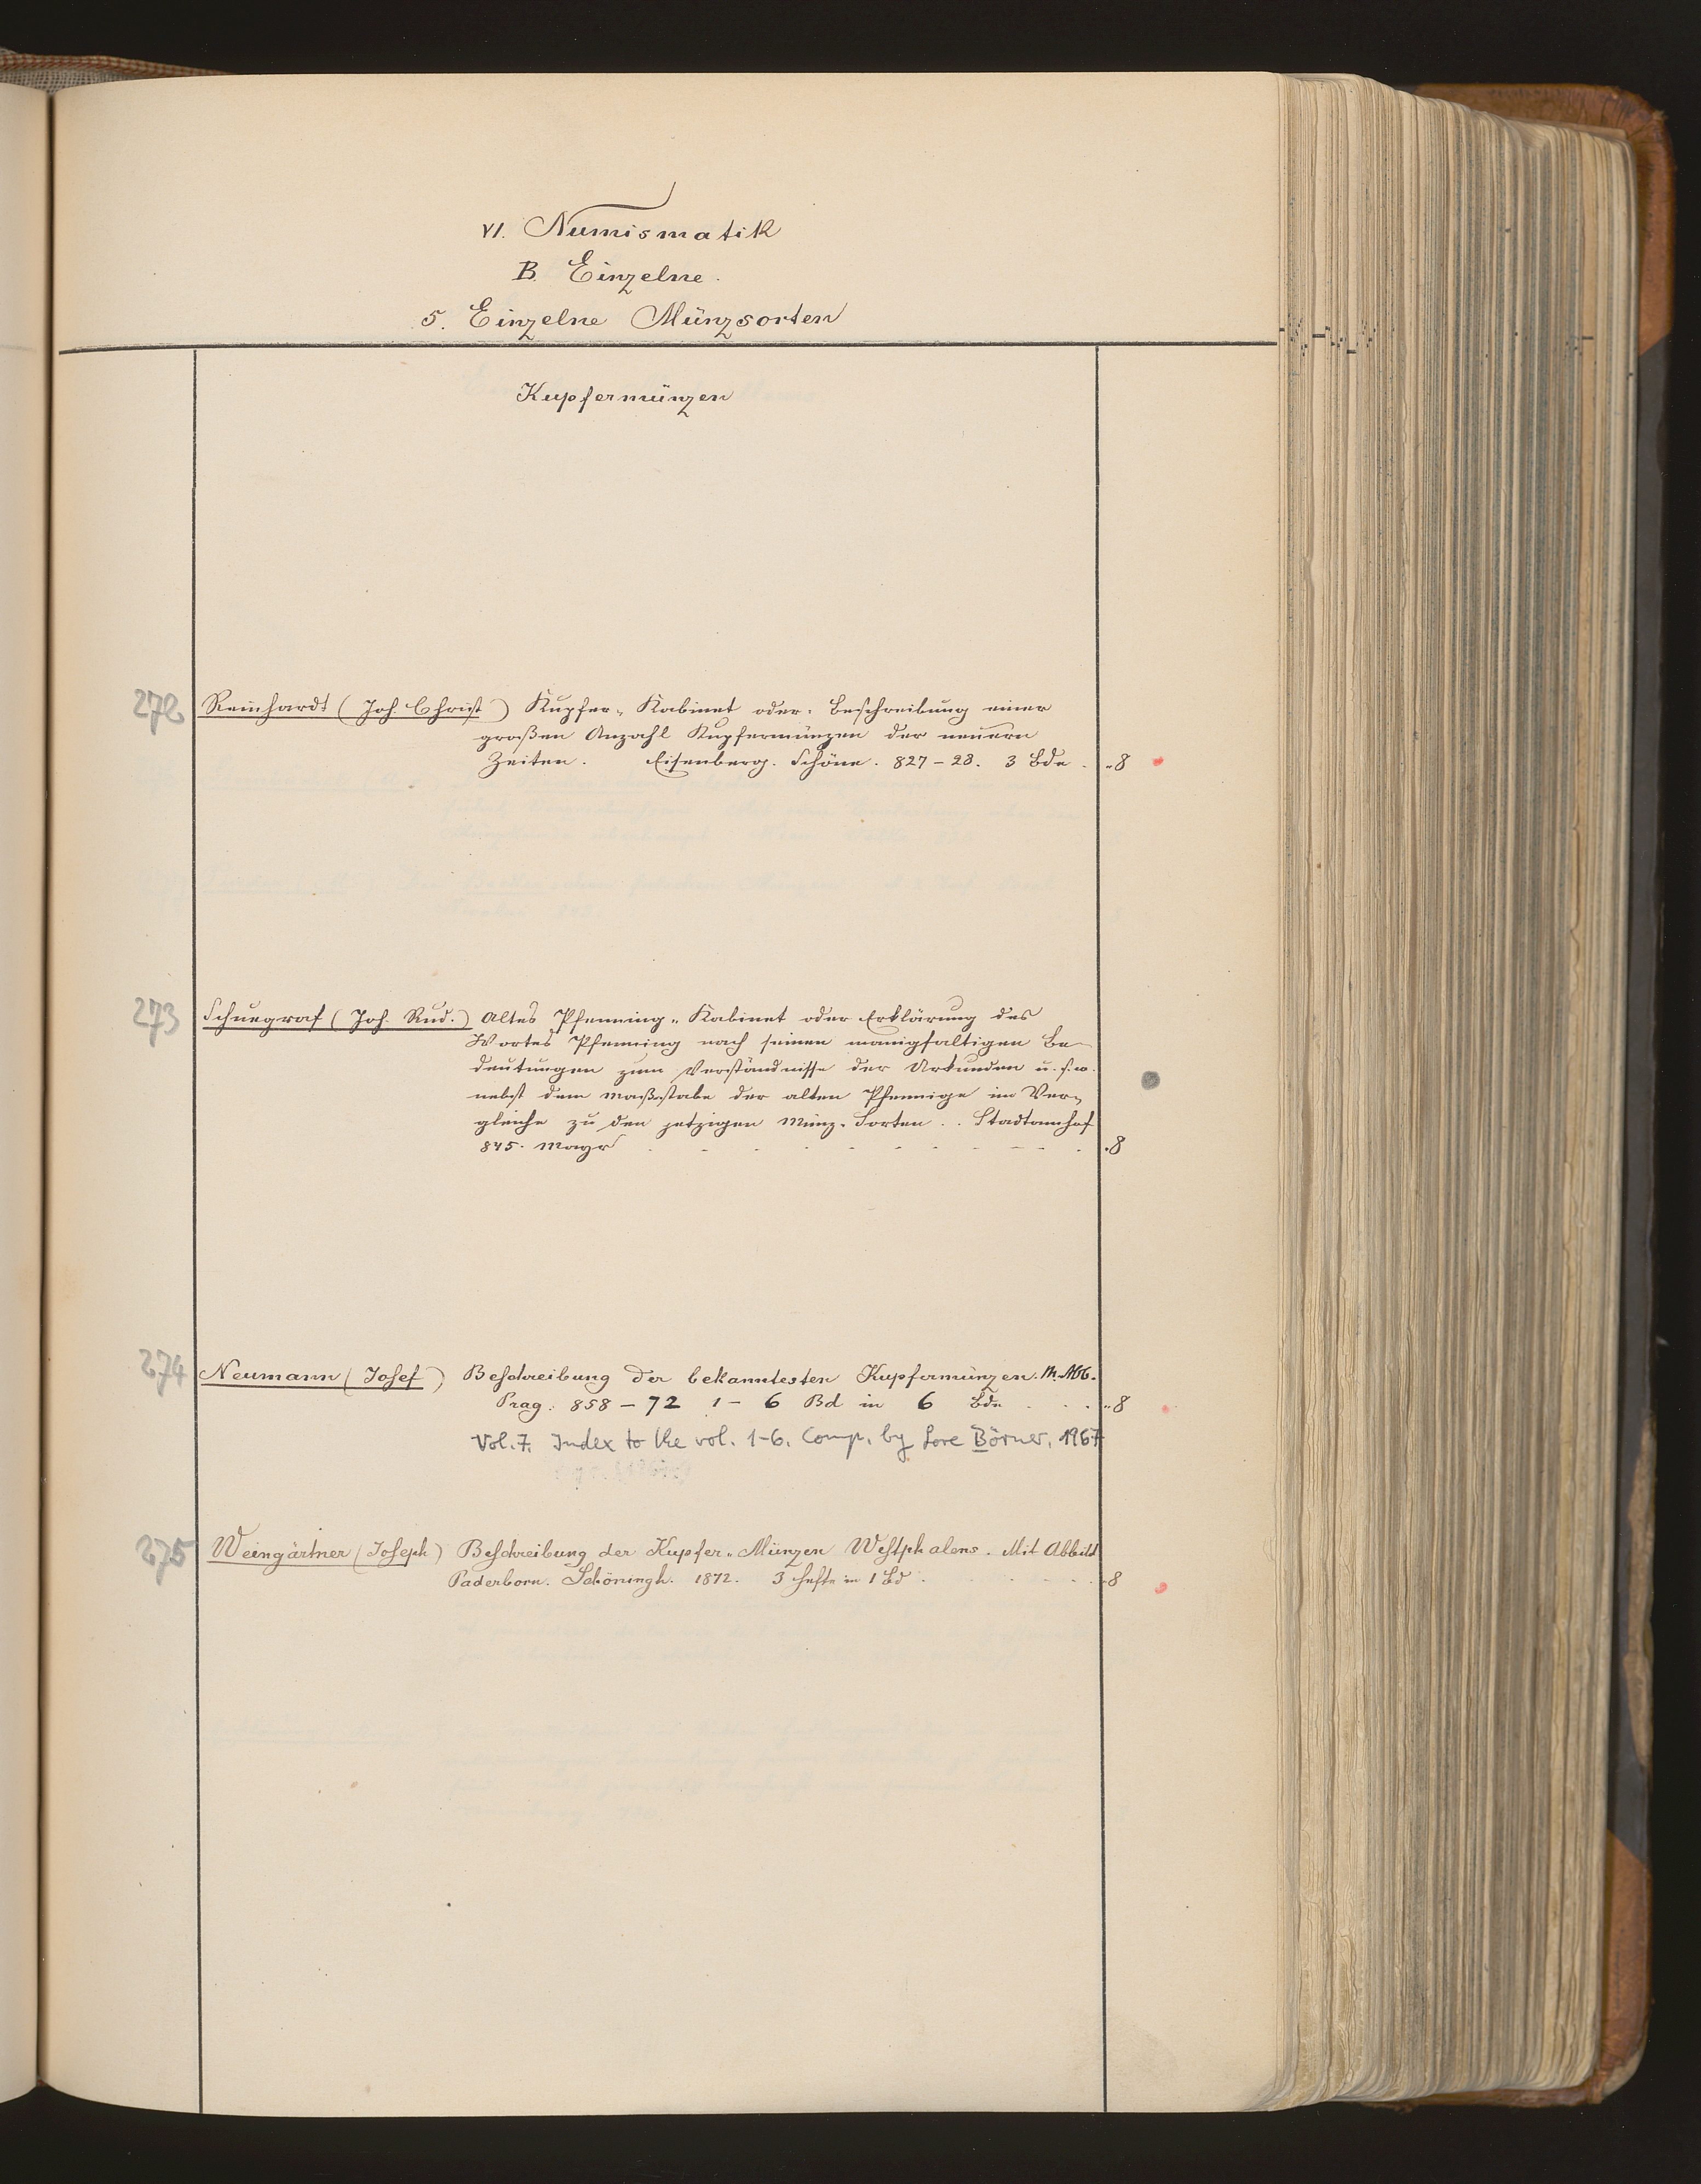 VI. Numismatik
B. Einzelne.
5. Einzelne Münzsorten
Kupfermünzen
272 Reinhardt (Joh. Christ) Kupfer-Kabinet oder Beschreibung einer
großen Anzahl Kupfermünzen der neuern
Zeiten. Eisenberg. Schöne. 827-28. 3 Bde. 8
273 Schuegraf (Joh. Rud.) Altes Pfenning-Kabinet oder Erklärung des
Wortes Pfenning nach seinen manigfaltigen Be-
deutungen zum Verständnisse der Urkunden u. s. w.
nebst dem Maßstabe der alten Pfennige im Ver-
gleiche zu den jetzigen Münz-Sorten. . Stadtamhof
845. Mayr 8
274 Neumann (Josef) Beschreibung der bekanntesten Kupfermünzen. M. Abb.
Prag: 858-72 1-6 Bd in 6 Bde 8
Vol. 7. Index to the vol. 1-6. Comp. by Lore Börner, 1967
275 Weingärtner (Joseph) Beschreibung der Kupfer-Münzen Westphalens. Mit Abbild
Paderborn. Schöningh. 1872. 3 Hefte in 1 Bd. 8